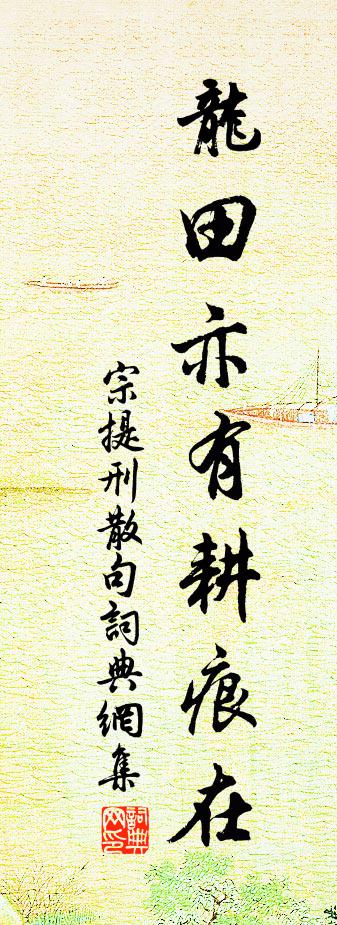 龍田亦有耕痕在
宗提刑散句詞典網集
詞典網印